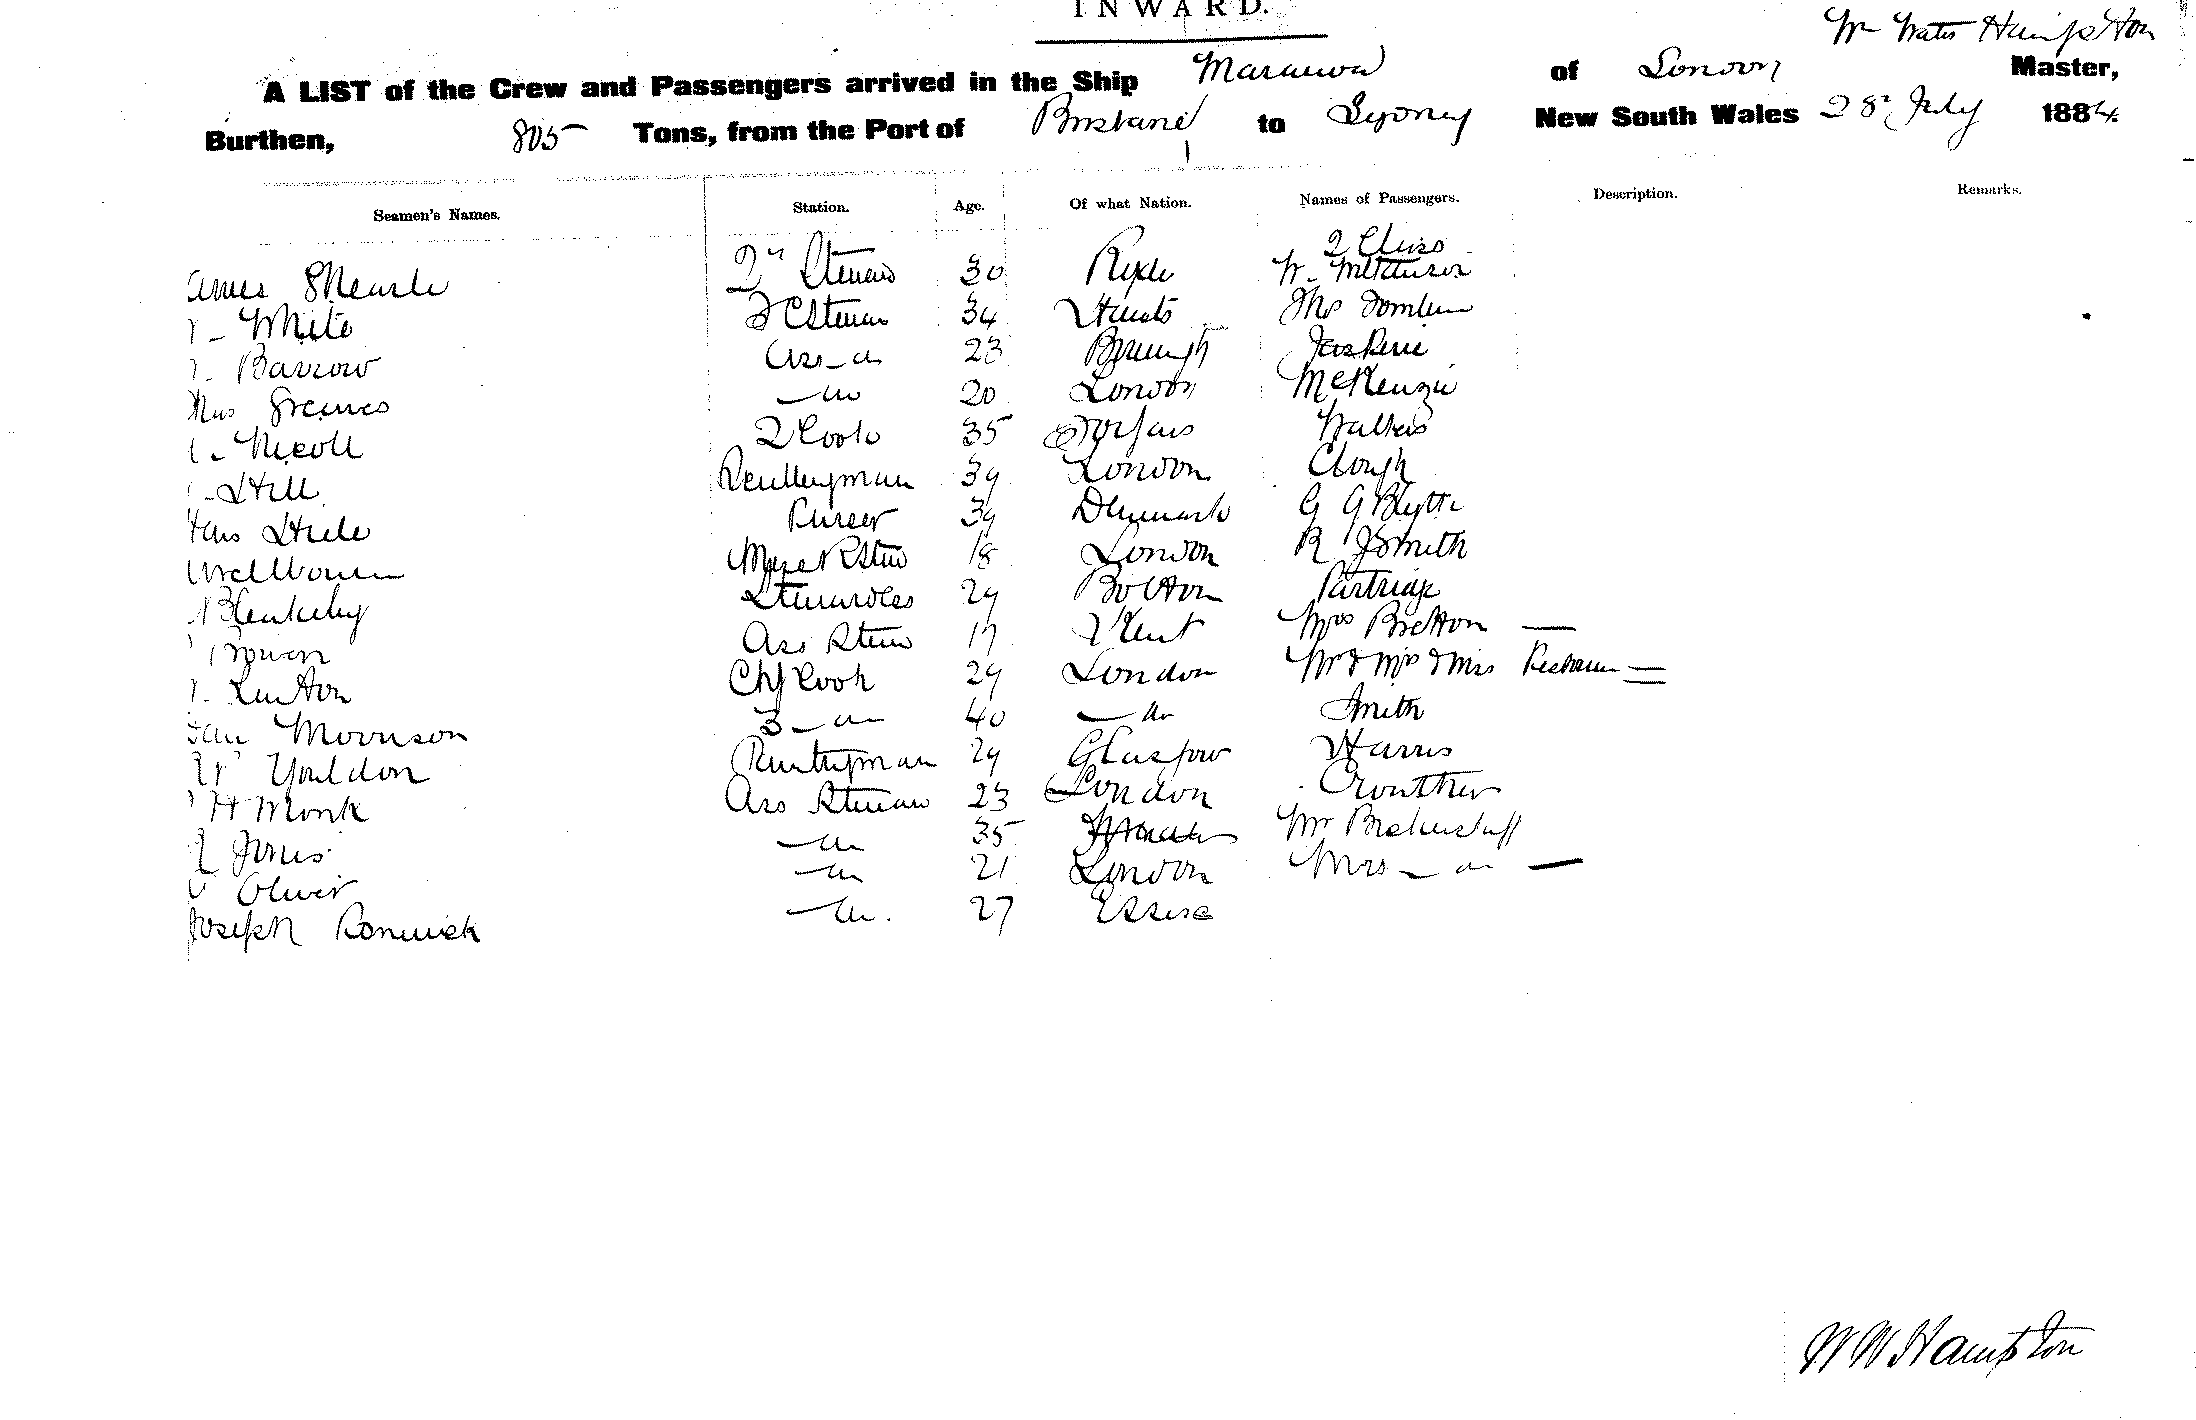 INWARD.
Wm Water Hampton
A LIST of the Crew and Passengers arrived in the Ship Mararoa of London Master,
Burthen, 805 Tons, from the Port of Brisbane to Sydney New South Wales 28 July 1884.
Seamen's Names. Station. Age. Of what Nation. Names of Passengers. Description. Remarks.
2 Class
Shearle 2nd Steward 30 Ryde W.
White 34 Hants Thos
Barrow Ass do 23
Greaves do 20 London McKenzie
Nicoll 2 Cook 35 Walters
Hill 39 London Clough
Hans Purser 39 Denmark G G Blyth
Wellbourn 18 London R J Smith
Blenkeley Stewardess 29 Bolton Partridge
Brown Ass Stew 17 Kent Mrs Bretton —
Chf Cook 29 London Mr & Mrs & Miss
Morrison 3 — do 40 — do Smith
Youldon Pantryman 29 Glasgow Harris
H Monk Ass Steward 23 London Crowther
Jones — do 35 Mr
Oliver — do 21 London Mrs — do —
Joseph — do. 27 Essex
W W Hampton